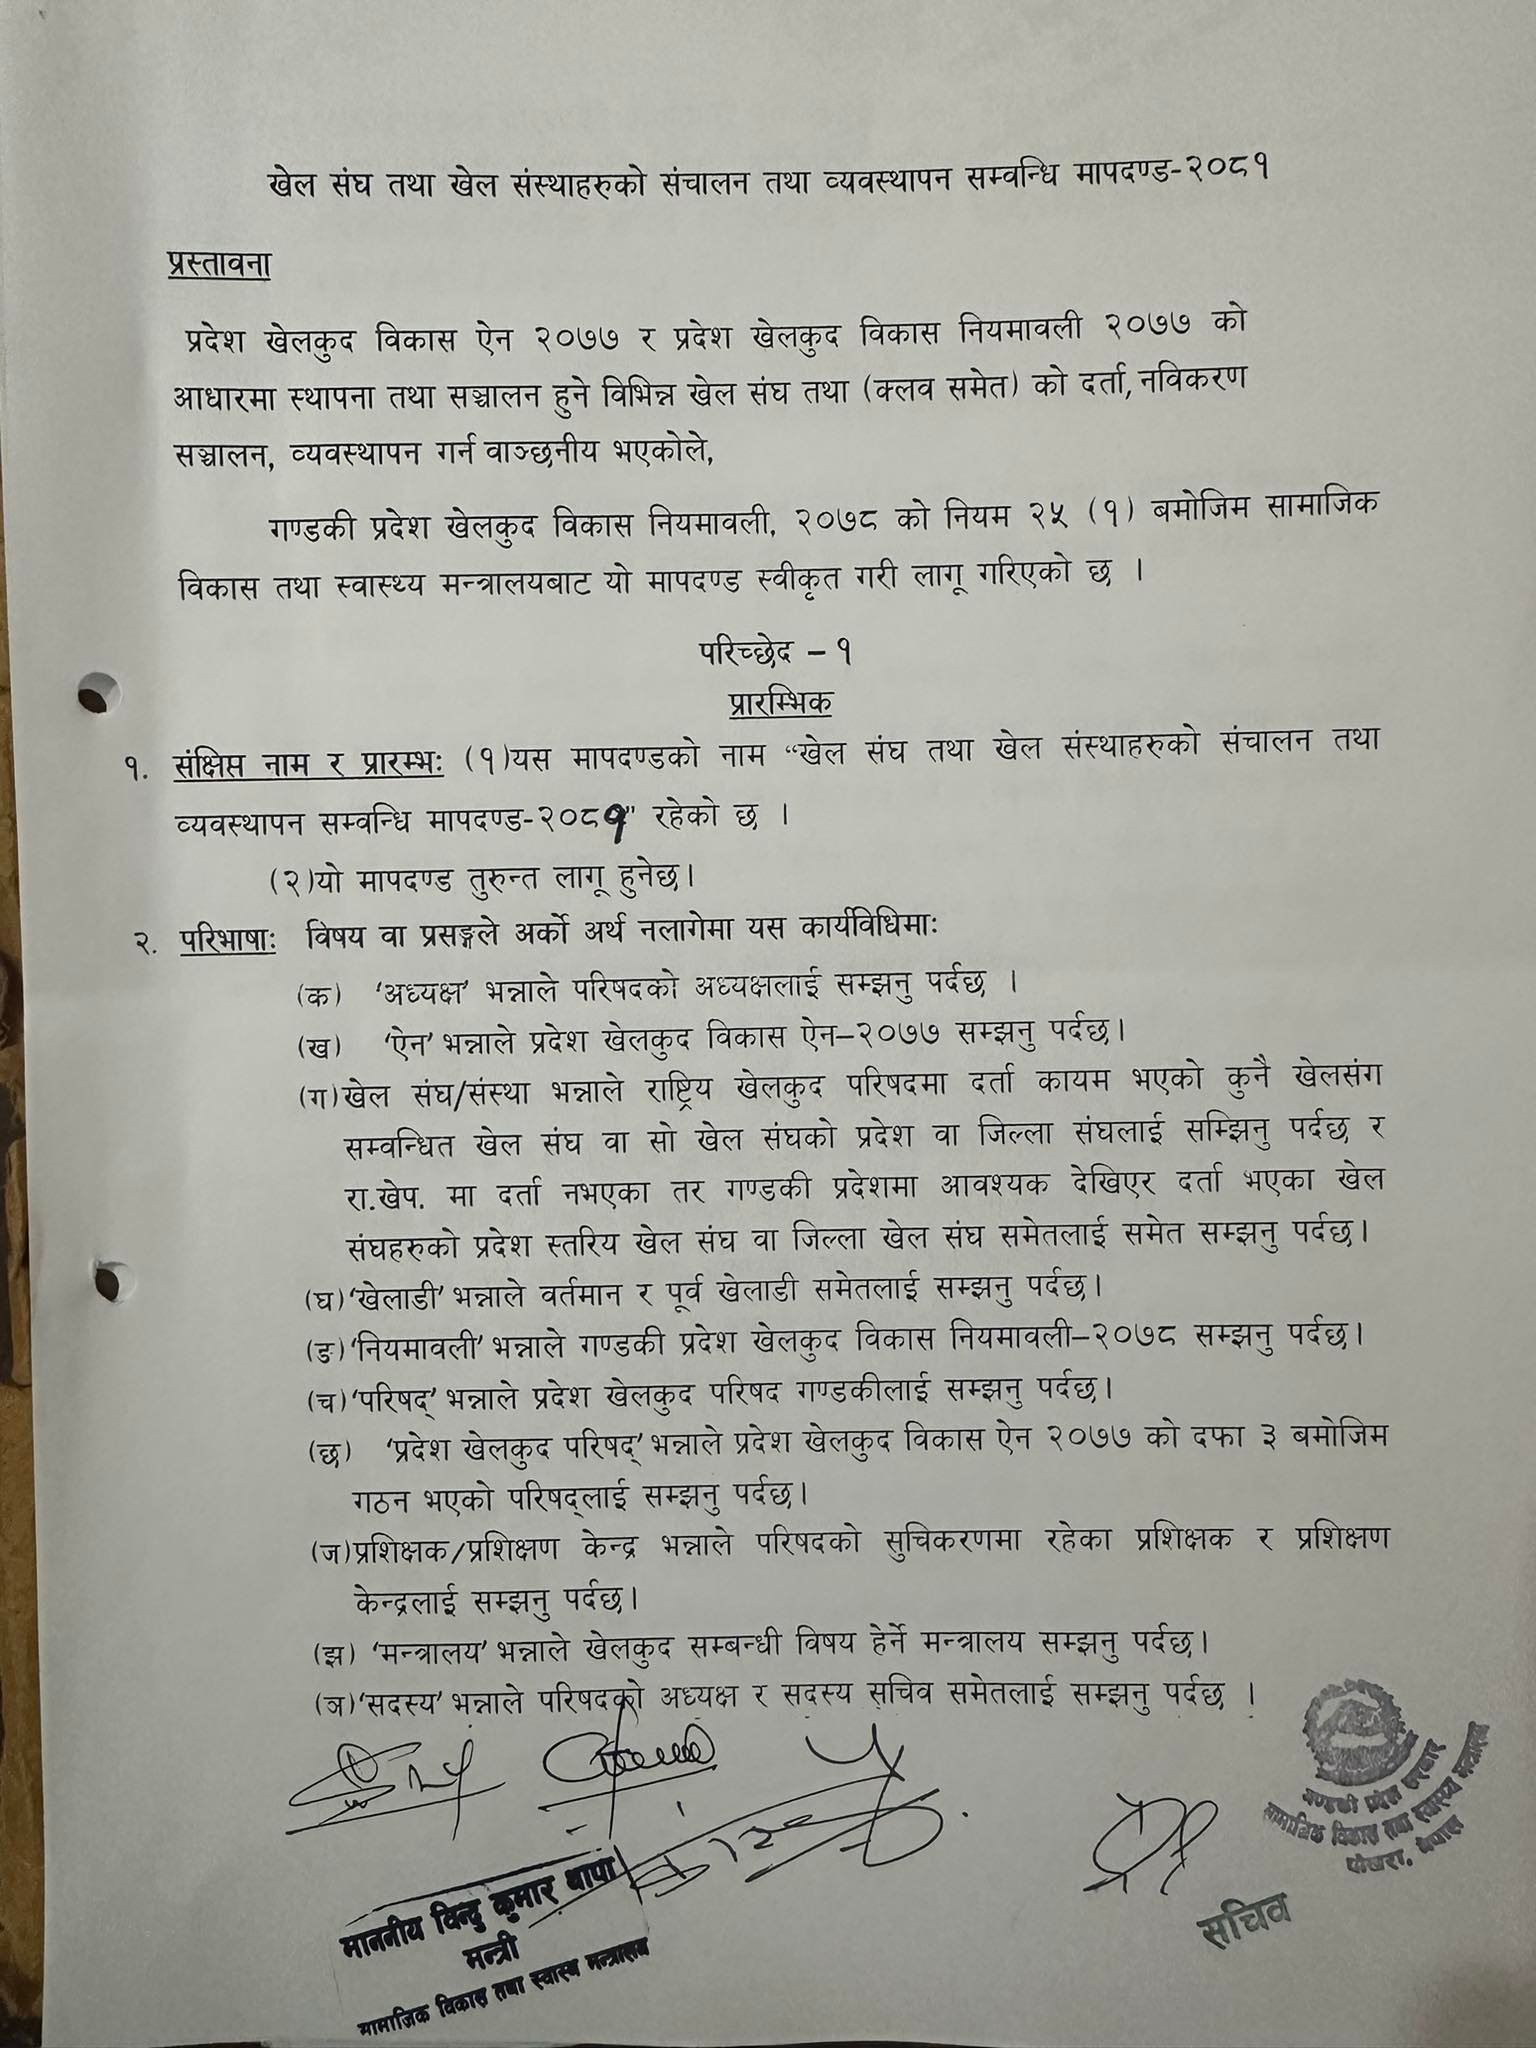 खेल संघ तथा खेल संस्थाहरुको संचालन तथा व्यवस्थापन सम्वन्धि मापदण्ड-२०८१
प्रस्तावना
प्रदेश खेलकुद विकास ऐन २०७७ र प्रदेश खेलकुद विकास नियमावली २०७७ को
आधारमा स्थापना तथा सञ्चालन हुने विभिन्न खेल संघ तथा (क्लव समेत) को दर्ता, नविकरण
सञ्चालन, व्यवस्थापन गर्न वाञ्छनीय भएकोले,
गण्डकी प्रदेश खेलकुद विकास नियमावली, २०७८ को नियम २५ (१) बमोजिम सामाजिक
विकास तथा स्वास्थ्य मन्त्रालयबाट यो मापदण्ड स्वीकृत गरी लागू गरिएको छ ।
परिच्छेद – १
प्रारम्भिक
१. संक्षिप्त नाम र प्रारम्भः (१)यस मापदण्डको नाम “खेल संघ तथा खेल संस्थाहरुको संचालन तथा
व्यवस्थापन सम्वन्धि मापदण्ड-२०८१” रहेको छ ।
(२)यो मापदण्ड तुरुन्त लागू हुनेछ।
२. परिभाषाः विषय वा प्रसङ्गले अर्को अर्थ नलागेमा यस कार्यविधिमाः
(क) ‘अध्यक्ष’ भन्नाले परिषदको अध्यक्षलाई सम्झनु पर्दछ ।
(ख) ‘ऐन’ भन्नाले प्रदेश खेलकुद विकास ऐन–२०७७ सम्झनु पर्दछ।
(ग)खेल संघ/संस्था भन्नाले राष्ट्रिय खेलकुद परिषदमा दर्ता कायम भएको कुनै खेलसंग
सम्वन्धित खेल संघ वा सो खेल संघको प्रदेश वा जिल्ला संघलाई सम्झिनु पर्दछ र
रा.खेप. मा दर्ता नभएका तर गण्डकी प्रदेशमा आवश्यक देखिएर दर्ता भएका खेल
संघहरुको प्रदेश स्तरिय खेल संघ वा जिल्ला खेल संघ समेतलाई समेत सम्झनु पर्दछ।
(घ)‘खेलाडी’ भन्नाले वर्तमान र पूर्व खेलाडी समेतलाई सम्झनु पर्दछ।
(ङ)‘नियमावली’ भन्नाले गण्डकी प्रदेश खेलकुद विकास नियमावली–२०७८ सम्झनु पर्दछ।
(च)‘परिषद्’ भन्नाले प्रदेश खेलकुद परिषद गण्डकीलाई सम्झनु पर्दछ।
(छ) ‘प्रदेश खेलकुद परिषद्’ भन्नाले प्रदेश खेलकुद विकास ऐन २०७७ को दफा ३ बमोजिम
गठन भएको परिषद्लाई सम्झनु पर्दछ।
(ज)प्रशिक्षक/प्रशिक्षण केन्द्र भन्नाले परिषदको सुचिकरणमा रहेका प्रशिक्षक र प्रशिक्षण
केन्द्रलाई सम्झनु पर्दछ।
(झ) ‘मन्त्रालय’ भन्नाले खेलकुद सम्बन्धी विषय हेर्ने मन्त्रालय सम्झनु पर्दछ।
(ञ)‘सदस्य’ भन्नाले परिषदको अध्यक्ष र सदस्य सचिव समेतलाई सम्झनु पर्दछ ।
गण्डकी प्रदेश सरकार
सामाजिक विकास तथा स्वास्थ्य मन्त्रालय
पोखरा, नेपाल
सचिव
माननीय विन्दु कुमार थापा
मन्त्री
सामाजिक विकास तथा स्वास्थ मन्त्रालय